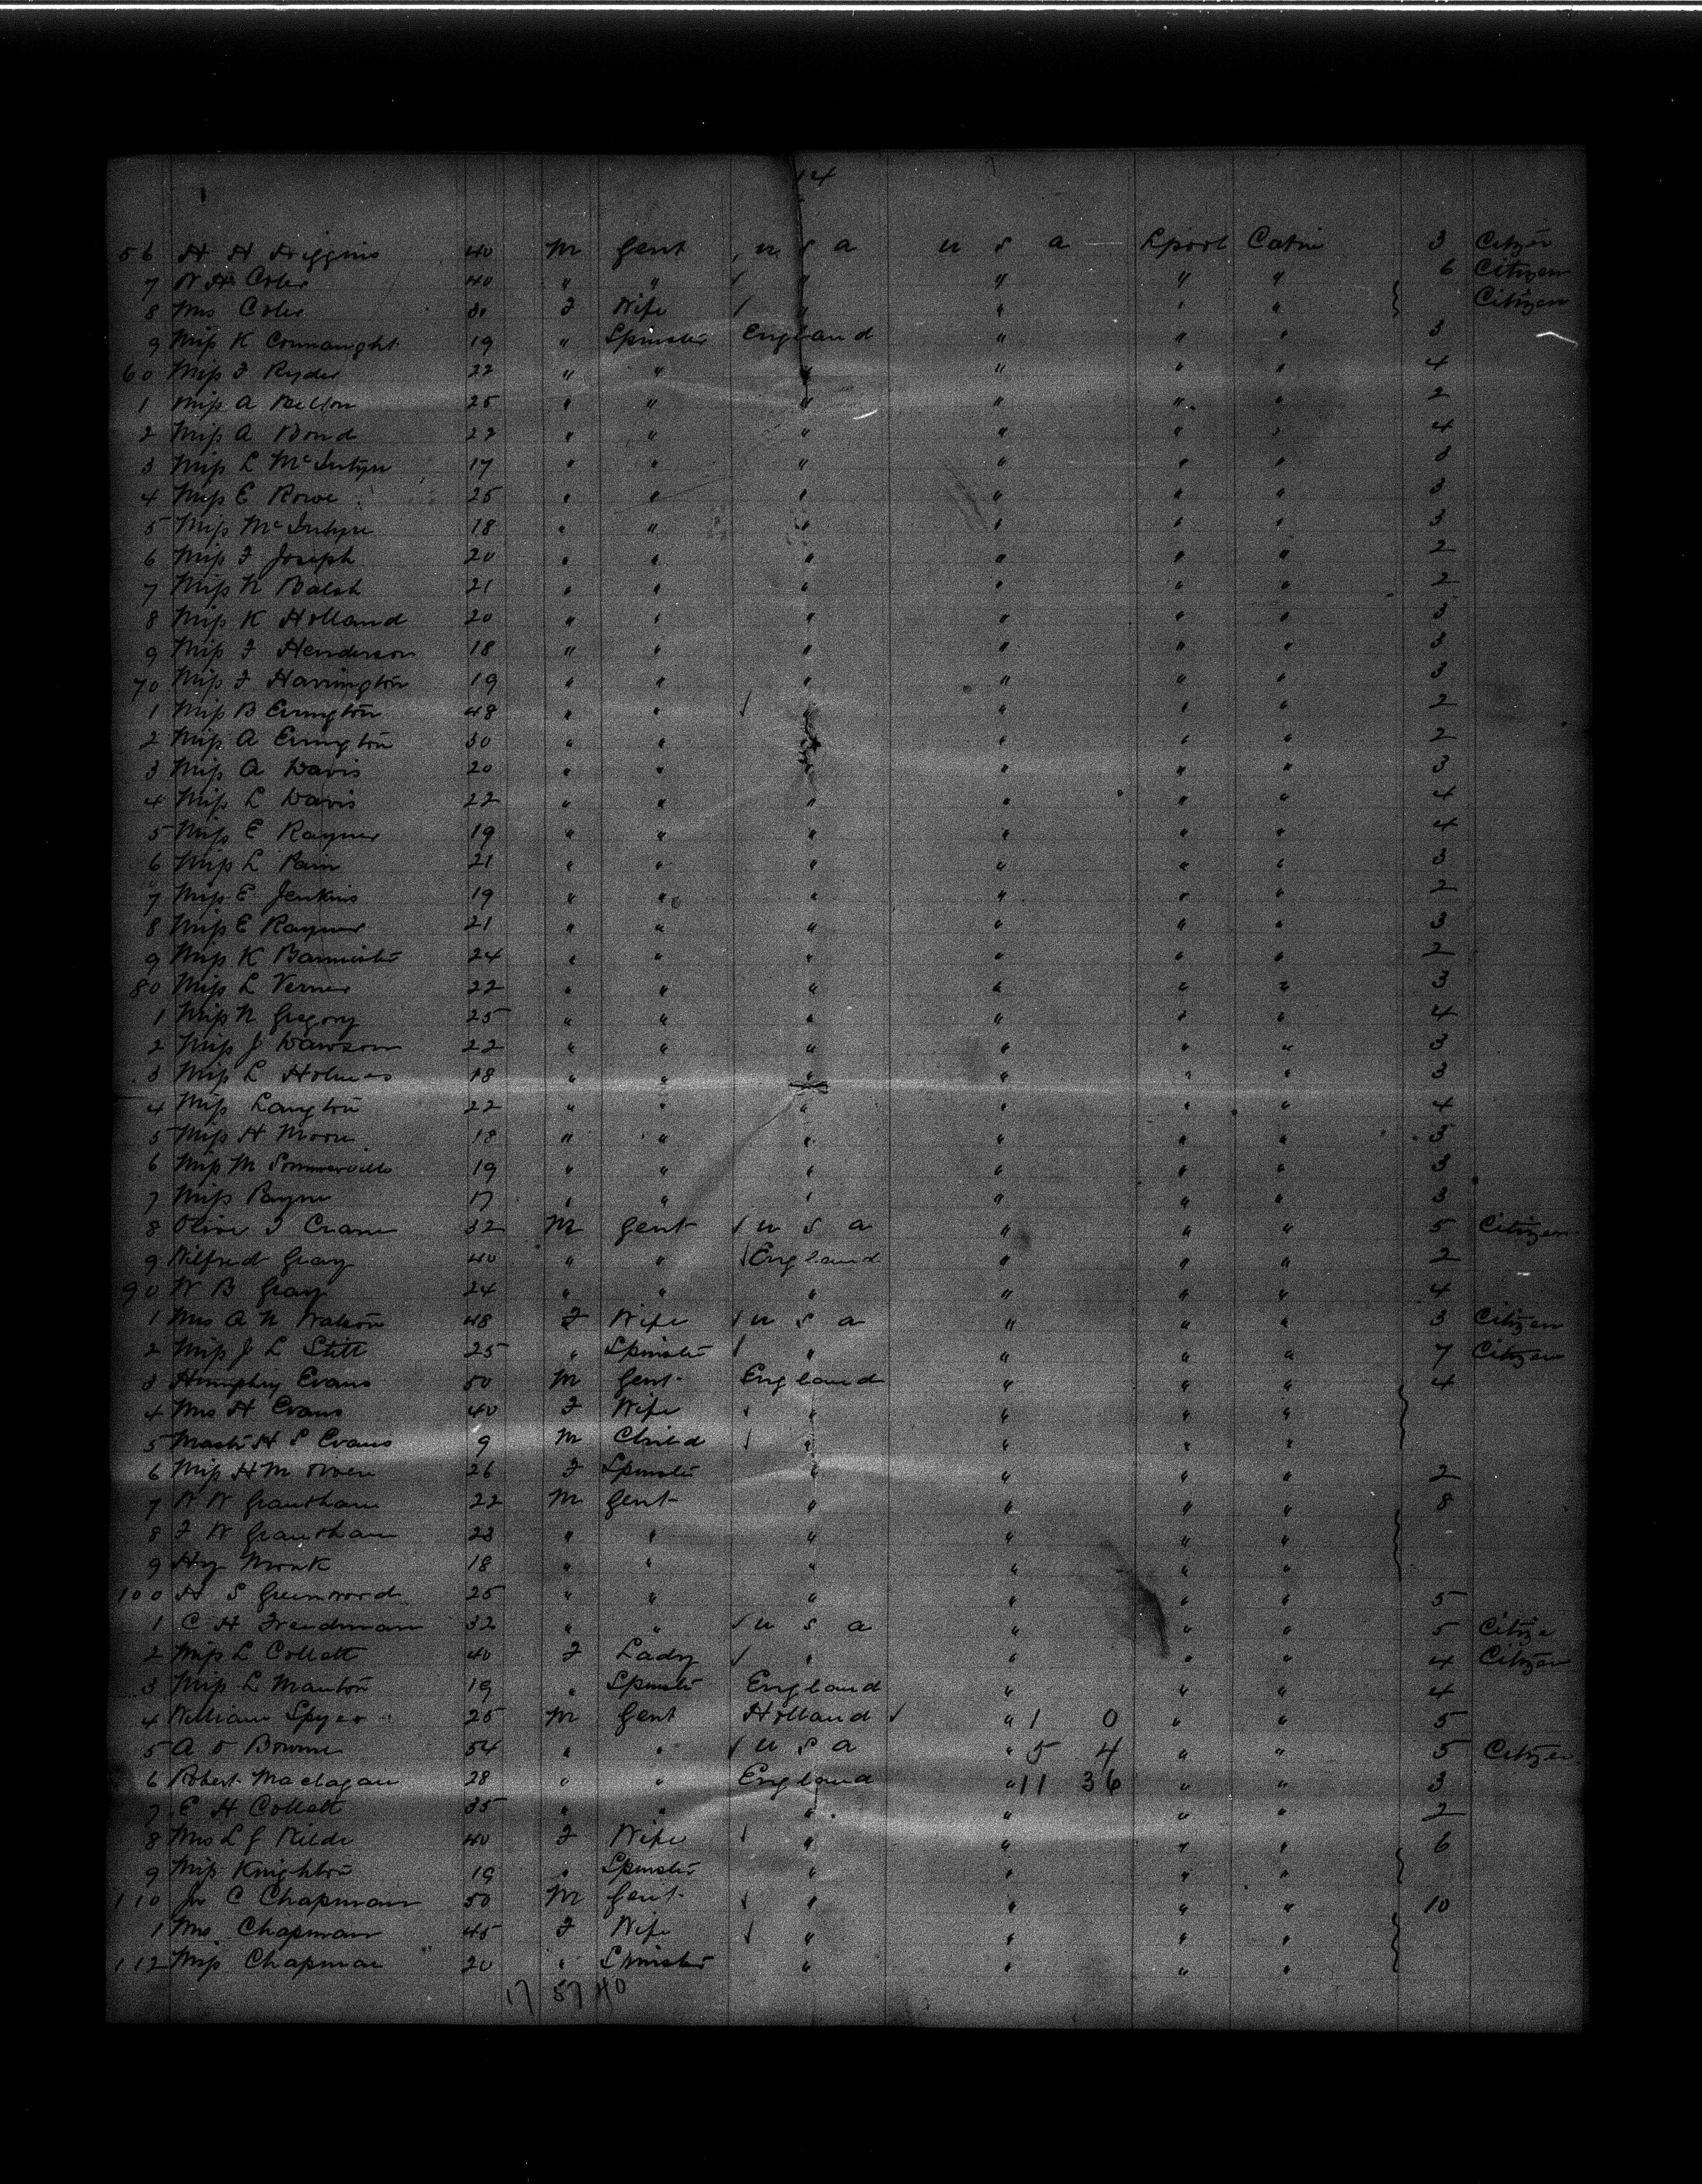 14
56 H H Higgins 40 M Gent U S A U S A Lpool Cabin 3 Citizen
7 W H Coles 40 " " " " " " 6 Citizen
8 Mrs Coles 30 F Wife " " " " Citizen
9 Miss K Connaught 19 " Spinster England " " " 3
60 Miss F Ryder 22 " " " " " " 4
1 Miss A 25 " " " " " " 2
2 Miss A Bond 22 " " " " " " 4
3 Miss L McIntyre 17 " " " " " " 3
4 Miss E Rowe 25 " " " " " " 3
5 Miss McIntyre 18 " " " " " " 3
6 Miss F Joseph 20 " " " " " " 2
7 Miss N Balsh 21 " " " " " " 2
8 Miss K Holland 20 " " " " " " 3
9 Miss F Henderson 18 " " " " " " 3
70 Miss F Harrington 19 " " " " " " 3
1 Miss B Errington 48 " " " " " " 2
2 Miss A Errington 30 " " " " " " 2
3 Miss A Davis 20 " " " " " " 3
4 Miss L Davis 22 " " " " " " 4
5 Miss E Rayner 19 " " " " " " 4
6 Miss L Pain 21 " " " " " " 3
7 Miss E Jenkins 19 " " " " " " 2
8 Miss E Rayner 21 " " " " " " 3
9 Miss K Bannister 24 " " " " " " 2
80 Miss L Verner 22 " " " " " " 3
1 Miss N Gregory 25 " " " " " " 4
2 Miss J Dawson 22 " " " " " " 3
3 Miss L Holmes 18 " " " " " " 3
4 Miss Langton 22 " " " " " " 4
5 Miss H Moore 18 " " " " " " 3
6 Miss M Sommerville 19 " " " " " " 3
7 Miss Payne 17 " " " " " " 3
8 Olive T Crane 32 M Gent U S A " " " 5 Citizen
9 Wilfred Gray 40 " " England " " " 2
90 W B Gray 24 " " " " " " 4
1 Mrs A N Watson 48 F Wife U S A " " " 3 Citizen
2 Miss J L Stitt 25 " Spinster " " " " 7 Citizen
3 Humphry Evans 50 M Gent England " " " 4
4 Mrs H Evans 40 F Wife " " " "
5 Mastr H S Evans 9 M Child " " " "
6 Miss H M Owen 26 F Spinster " " " " 2
7 W W Grantham 22 M Gent " " " " 8
8 F W Grantham 23 " " " " " "
9 Hy Monk 18 " " " " " "
100 H S Greenwood 25 " " " " " " 5
1 C H Freedman 32 " " U S A " " " 5 Citize
2 Miss L Collett 40 F Lady " " " " 4 Citizen
3 Miss L Manton 19 " Spinster England " " " 4
4 William Spyer 25 M Gent Holland " 1 0 " " 5
5 A O Bourne 54 " " U S A " 5 4 " " 5 Citizen
6 Robert Maclagan 28 " " England " 11 36 " " 3
7 E H Collett 35 " " " " " " 2
8 Mrs L J Wilde 40 F Wife " " " " 6
9 Miss Knighton 19 " Spinster " " " "
110 Jn C Chapman 50 M Gent " " " " 10
1 Mrs Chapman 45 F Wife " " " "
112 Miss Chapman 20 " Spinster " " " "
17 57 40